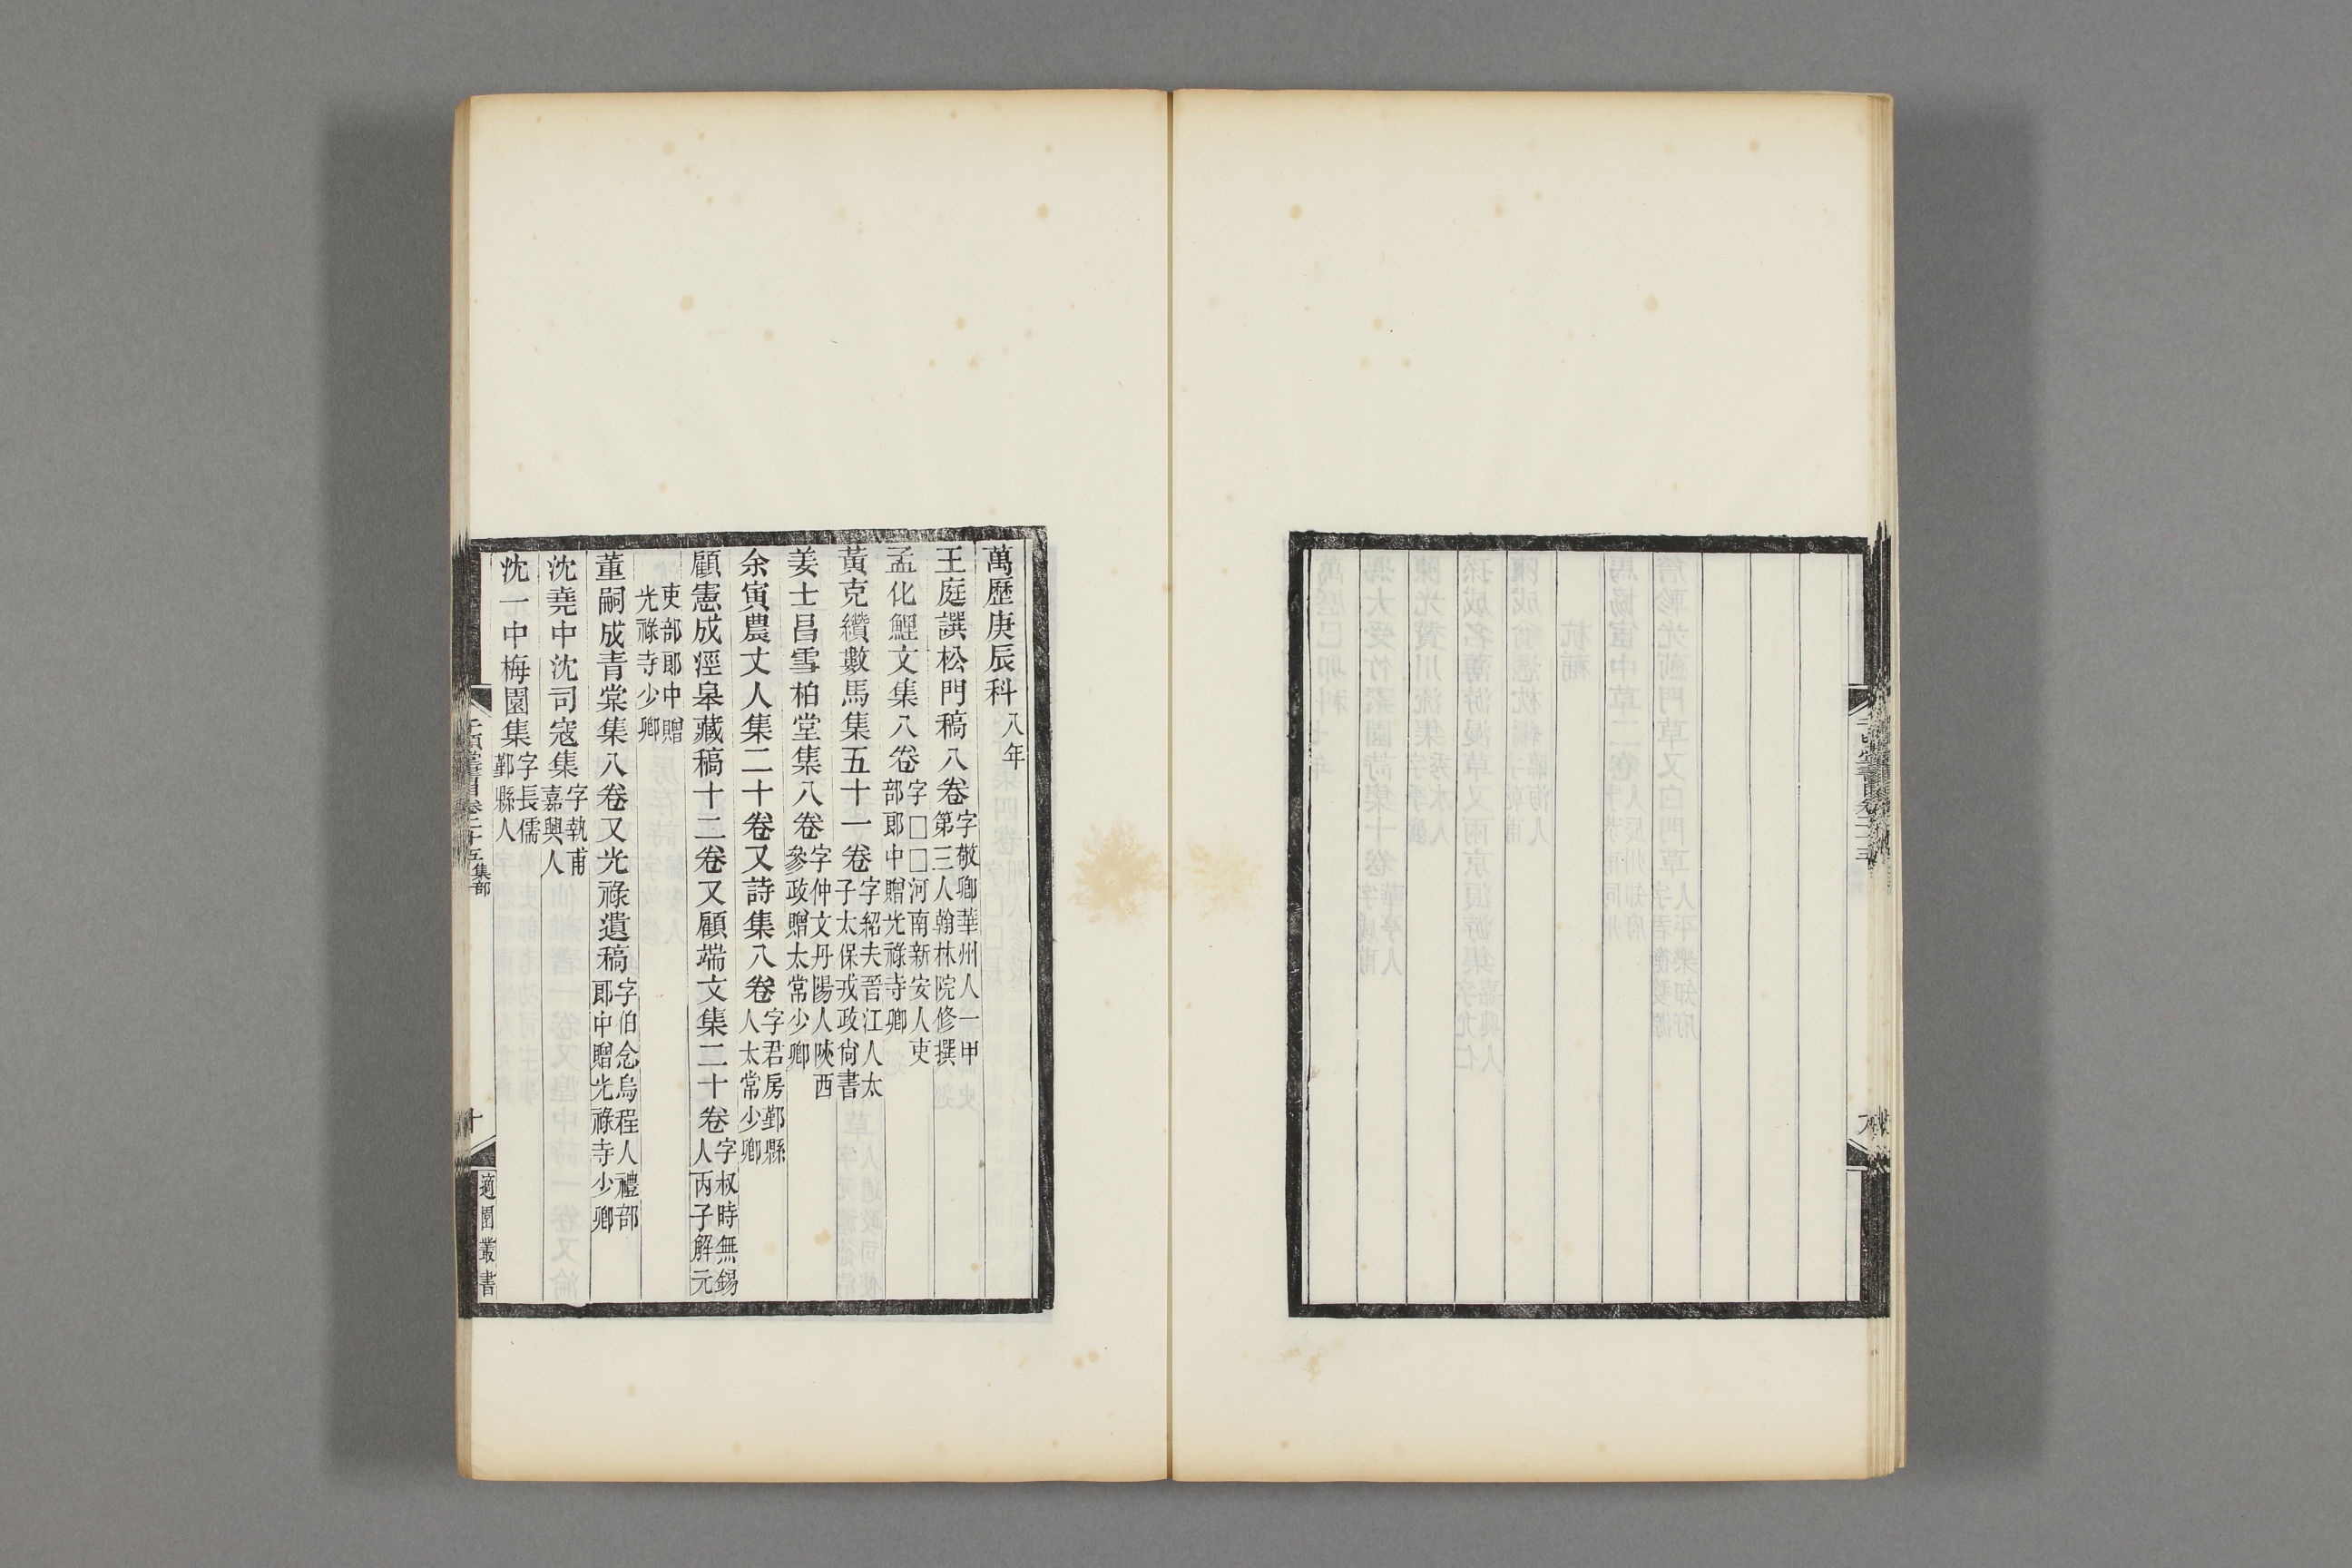 萬歷庚辰科八年
王庭譔松門稿八卷字敬卿華州人一甲第三人翰林院修撰
孟化鯉文集八卷字□□河南新安人吏部郎中贈光祿寺卿
黃克纘數馬集五十一卷字紹夫晉江人太子太保戎政尙書
姜士昌雪柏堂集八卷字仲文丹陽人陝西參政贈太常少卿
余寅農丈人集二十卷又詩集八卷字君房鄞縣人太常少卿
顧憲成涇皋藏稿十二卷又顧端文集二十卷字叔時無錫人丙子解元
吏部郎中贈光祿寺少卿
董嗣成青棠集八卷又光祿遺稿字伯念烏程人禮部郎中贈光祿寺少卿
沈堯中沈司寇集字執甫嘉興人
沈一中梅園集字長儒鄞縣人
千頃堂書目卷二十五集部
十
適園叢書